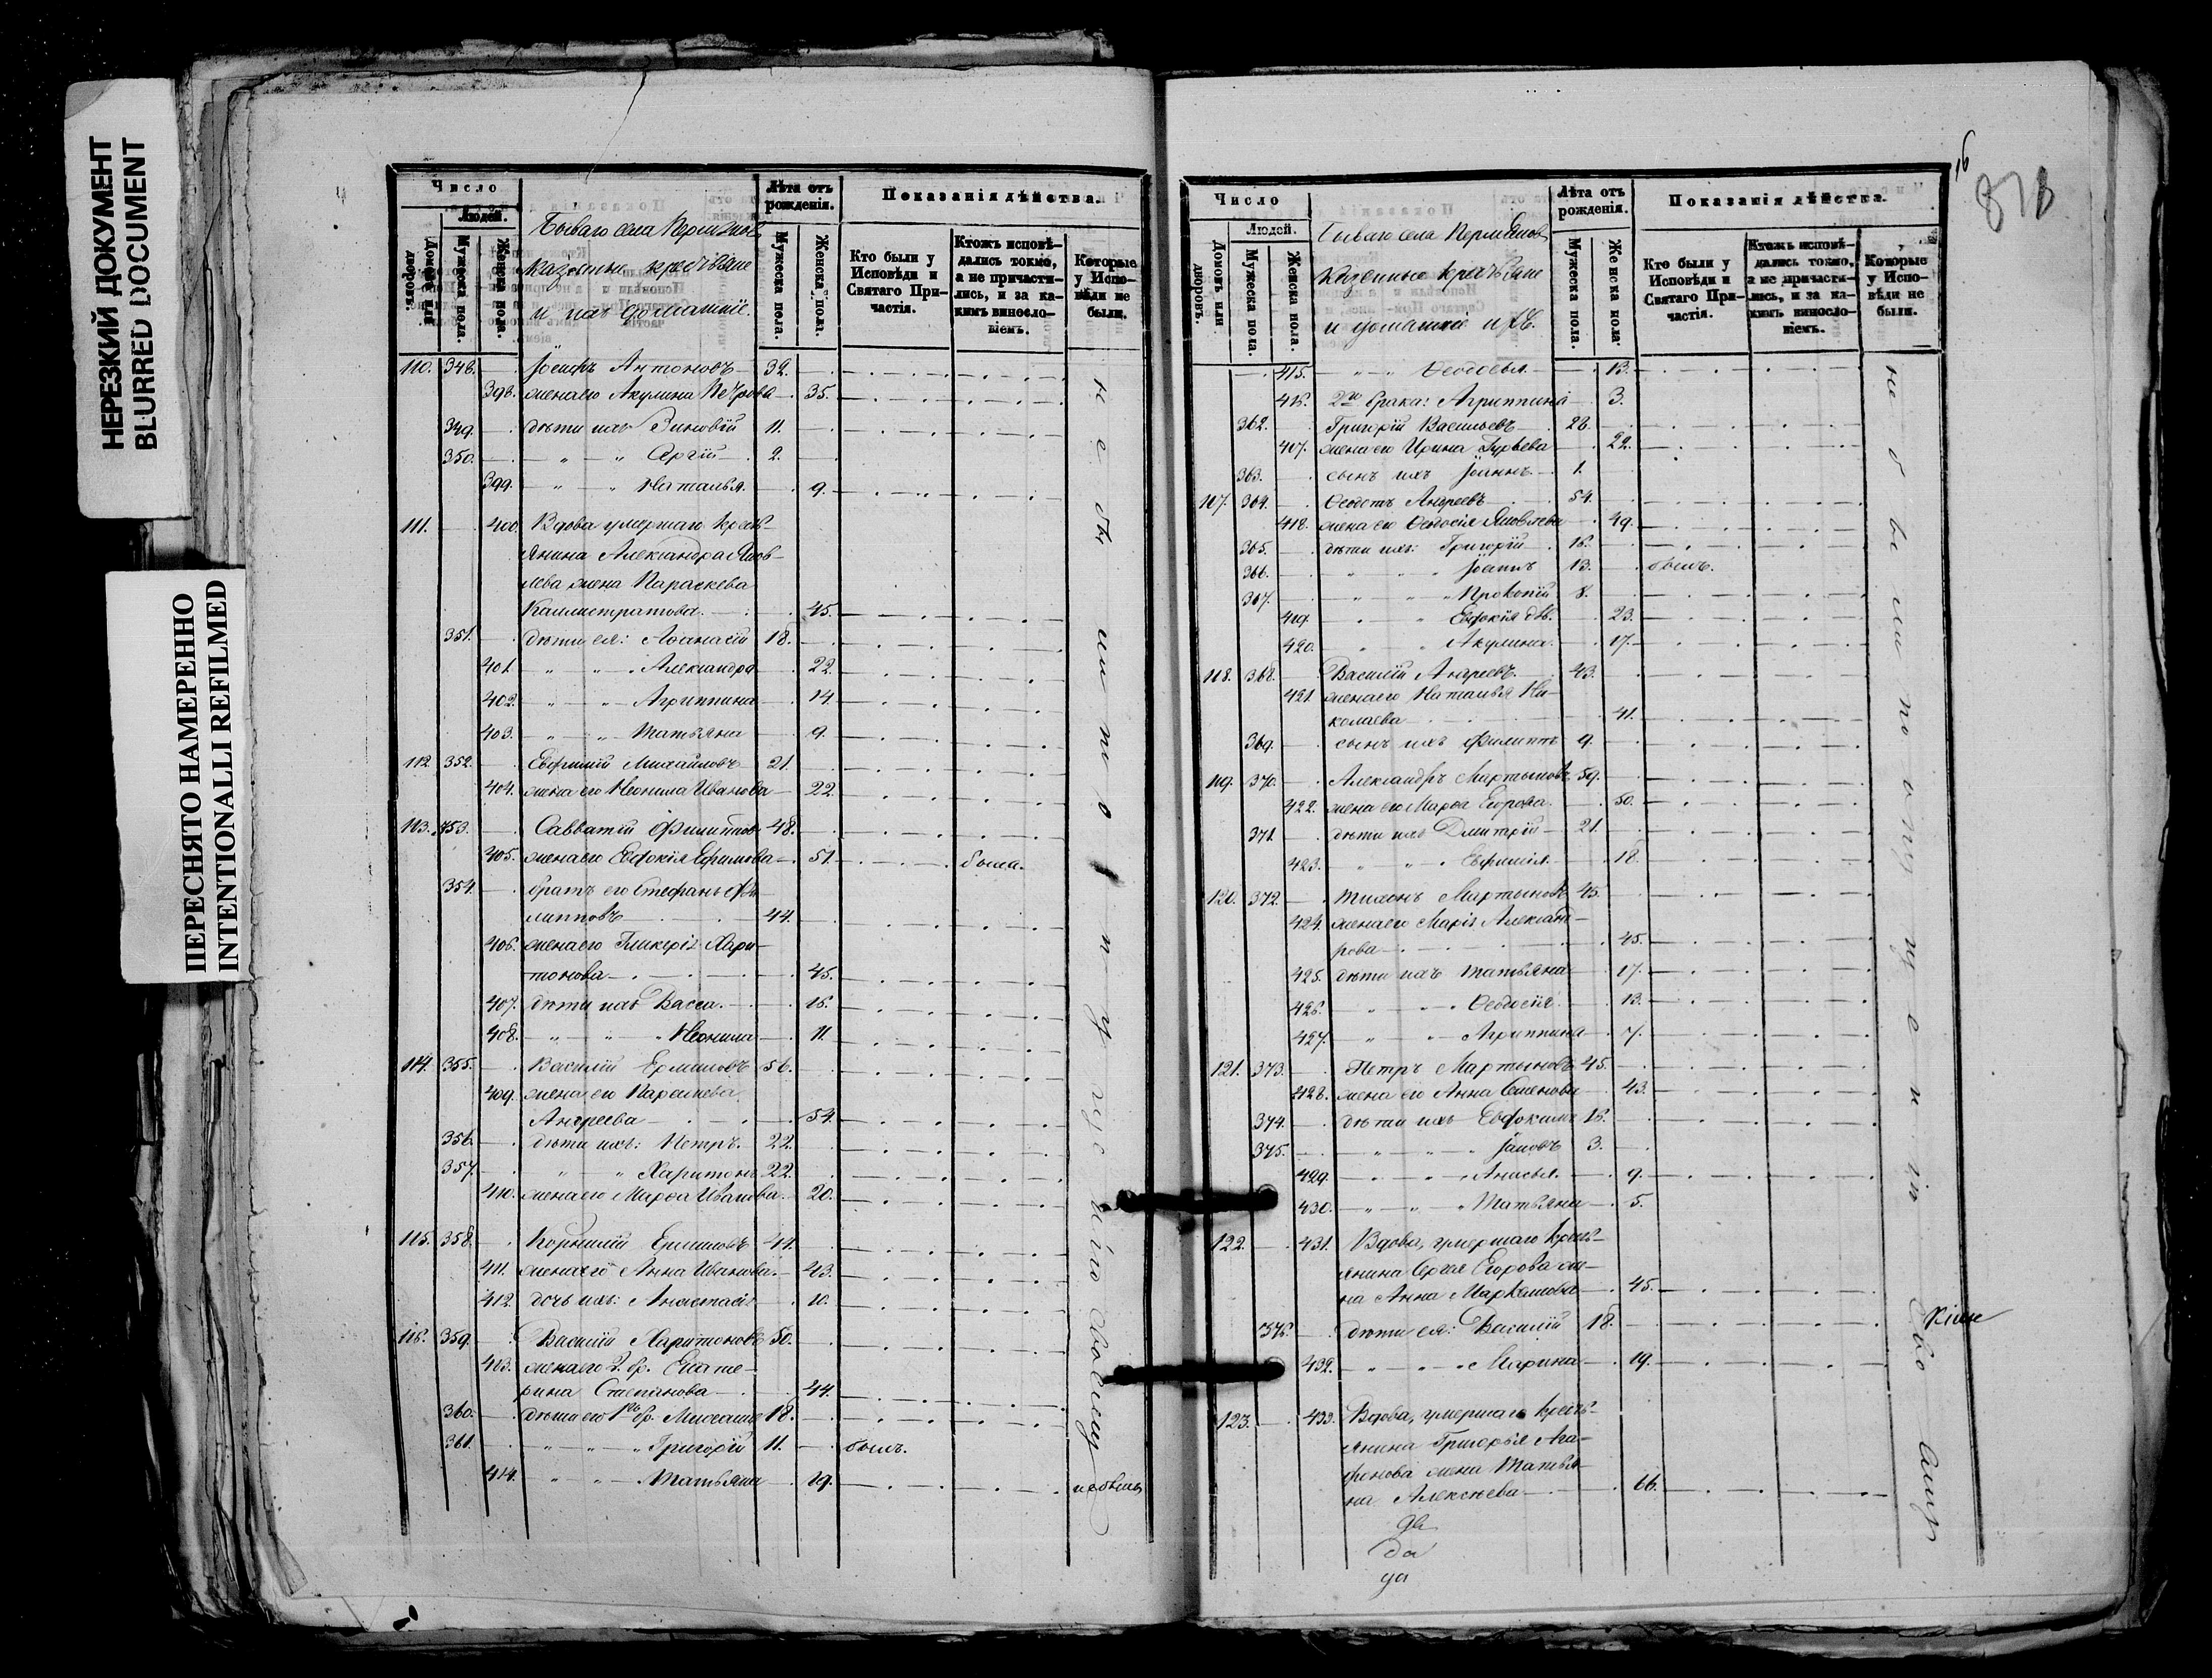 НЕРЕЗКИЙ ДОКУМЕНТ
BLURRED DOCUMENT
ПЕРЕСНЯТО НАМЕРЕННО
INTENTIONALLI REFILMED
Число
Людей.
Домовъ или дворовъ.
Мужеска пола.
Женска пола.
Бывшаго села
казенные крестьяне
и ихъ домашніе.
Лѣта отъ рожденія.
Мужеска пола.
Женска пола.
Показанія дѣйства.
Кто были у Исповѣди и Святаго Причастія.
Ктожъ исповѣдались токмо, а не причастились, и за какимъ винословіемъ.
Которые у Исповѣди не были.
110. 348. Іосифъ Антоновъ 32.
398. жена его Акулина Петрова 35.
349. дѣти ихъ Зиновій 11.
350. " " Сергій 2.
399. " " Наталья 9.
111. 400. Вдова умершаго кресть-
янина Александра Яков-
лева жена Параскева
Каллистратова 45.
351. дѣти ея: Аѳанасій 18.
401. " " Александра 22.
402. " " Агриппина 14.
403. " " Татьяна 9.
112. 352. Евфимій Михайловъ 21.
404. жена его Неонила Иванова 22.
113. 353. Савватій Филипповъ 48.
405. жена его Евдокія Ефимова 51. была.
354. братъ его Стефанъ Фи-
липповъ 44.
406. жена его Гликерія Хари-
тонова 45.
407. дѣти ихъ Васса 16.
408. " " " Неонила 11.
114. 355. Василій Ермиловъ 56.
409. жена его Параскева
Андреева 54.
356. дѣти ихъ: Петръ 22.
357. " " Харитонъ 22.
410. жена его Марѳа Иванова 20.
115. 358. Корнилій Ермиловъ 44.
411. жена его Анна Иванова 43.
412. дочь ихъ: Анастасія 10.
116. 359. Василій Харитоновъ 50.
413. жена его 2. бр. Екате-
рина Степанова 44.
360. дѣти его 1го бр. Михаилъ 18.
361. " " " Григорій 11. былъ.
414. " " Татьяна 19.
не были по опущенію своему
16
Число
Людей.
Домовъ или дворовъ.
Мужеска пола.
Женска пола.
Бывшаго села
казенные крестьяне
и домашніе ихъ.
Лѣта отъ рожденія.
Мужеска пола.
Женска пола.
Показанія дѣйства.
Кто были у Исповѣди и Святаго Причастія.
Ктожъ исповѣдались токмо, а не причастились, и за какимъ винословіемъ.
Которые у Исповѣди не были.
415. " " Ѳеодосья 13.
416. 2го брака: Агриппина 3.
362. Григорій Васильевъ 28.
407. жена его Ирина Гурьева 22.
363. сынъ ихъ Іоаннъ 1.
107. 364. Ѳеодотъ Андреевъ 54.
418. жена его Ѳеодосія Яковлева 49.
365. дѣти ихъ: Григорій 16.
366. " " " Іоаннъ 13. былъ.
367. " " " Прокопій 8.
419. " " Евдокія дѣв. 23.
420. " " Акулина 17.
118. 368. Василій Андреевъ 43.
421. жена его Наталья Ни-
колаева 41.
369. сынъ ихъ Филиппъ 9.
119. 370. Александръ Мартыновъ 59.
422. жена его Марѳа Егорова 50.
371. дѣти ихъ Дмитрій 21.
423. " " " Евфимія 18.
120. 372. Тихонъ Мартыновъ 45.
424. жена его Марія Александ-
рова 45.
425. дѣти ихъ Татьяна 17.
426. " " " Ѳеодосія 13.
427. " " Агриппина 7.
121. 373. Петръ Мартыновъ 45.
428. жена его Анна Семенова 43.
374. дѣти ихъ Евдокимъ 16.
375. " " " Іаковъ 3.
429. " " " Анисья 9.
430. " " " Татьяна 5.
122. 431. Вдова, умершаго кресть-
янина Сергѣя Егорова же-
на Анна Маркелова 45.
376. дѣти ея: Василій 18.
432. " " " Марина 19.
123. 433. Вдова, умершаго кресть-
янина Григорья Ага-
фонова жена Татья-
на Алексѣева 66.
да
уа
не были по опущенію